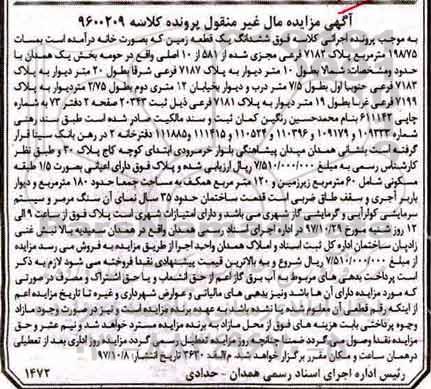 آگهی مزایده مال غیر منقول پرونده کلاسه ۹۶۰۰۲۰۹
به موجب پرونده اجرائی کلاسه فوق ششدانگ یک قطعه زمین که بصورت خانه درآمده است بمساحت
۱۹۸/۷۵ مترمربع پلاک ۷۱۸۲ فرعی مجزی شده از ۵۸۱ از ۱۰ اصلی واقع در حومه بخش یک همدان با
حدود ومشخصات شمالا بطول ۱۰ متر دیوار به پلاک ۷۱۸۷ فرعی شرقا بطول ۲۰ متر دیوار به پلاک
۷۱۸۳ فرعی جنوبا اول بطول ۷/۵ متر درب و دیوار بخیابان ۱۲ متری دوم بطول ۲/۷۵ متردیوار به پلاک
۷۱۹۹ فرعی غربا بطول ۱۹ متر دیوار به پلاک ۷۱۸۱ فرعی ذیل ثبت ۲۰۲۴۳ صفحه ۲ دفتر ۷۳ به شماره
چاپی ۶۱۱۱۴۲ بنام محمدحسین رنگین کمان ثبت و سند مالکیت صادر شده است طبق سند رهنی
شماره ۱۰۹۳۳۳ و ۱۰۹۱۷۹ و ۱۱۰۳۹۶ و ۱۱۰۵۲۴ و ۱۱۱۴۱۵ و ۱۱۱۸۸۵ دفترخانه ۲ در رهن بانک سینا قرار
گرفته است بنشانی همدان میدان پیشاهنگی بلوار خرمرودی ابتدای کوچه کاج پلاک ۳۰ و طبق نظر
کارشناس رسمی به مبلغ ۷/۵۱۰/۰۰۰/۰۰۰ ریال ارزیابی شده و پلاک فوق دارای اعیانی بصورت ۱/۵ طبقه
مسکونی شامل ۶۰ مترمربع زیرزمین و ۱۲۰ متر مربع همکف به مساحت جمعا حدود ۱۸۰ مترمربع و دیوار
باربر آجری و سقف طاق ضربی است قدمت ساختمان حدود ۳۵ سال نمای آن سنگ مرمر و سیستم
سرمایشی کولرآبی و گرمایشی گاز شهری می باشد و دارای امتیازات شهری است پلاک فوق از ساعت ۹ الی
۱۲ روز شنبه مورخ ۹۷/۱۰/۲۹ در اداره اجرای اسناد رسمی همدان واقع در همدان سعیدیه بالا نبش فنی
زادیان ساختمان اداره کل ثبت اسناد و املاک همدان واحد اجرا از طریق مزایده به فروش می رسد مزایده
از مبلغ ۷/۵۱۰/۰۰۰/۰۰۰ ریال شروع و به بالاترین قیمت پیشنهادی نقدا فروخته می شود لازم به ذکر
است پرداخت بدهی های مربوط به آب برق گاز اعم از حق انشعاب و یا حق اشتراک و مصرف در صورتی
که مورد مزایده دارای آن ها باشد ونیز بدهی های مالیاتی و عوارض شهرداری و غیره تا تاریخ مزایده اعم
از اینکه رقم قطعی آن معلوم شده یا نشده باشد به عهده برنده مزایده است و نیز در صورت وجود مازاد
وجوه پرداختی بابت هزینه های فوق از محل مازاد به برنده مزایده مسترد خواهد شد و نیم عشر و حق
مزایده نقدا وصول می گردد ضمنا چنانچه روز مزایده تعطیل رسمی گردد مزایده روز اداری بعد از تعطیلی
درهمان ساعت و مکان مقرر برگزار خواهد شد. م الف ۳۶۳۰ تاریخ انتشار: ۹۷/۱۰/۸
رئیس اداره اجرای اسناد رسمی همدان - حدادی ۱۴۷۲